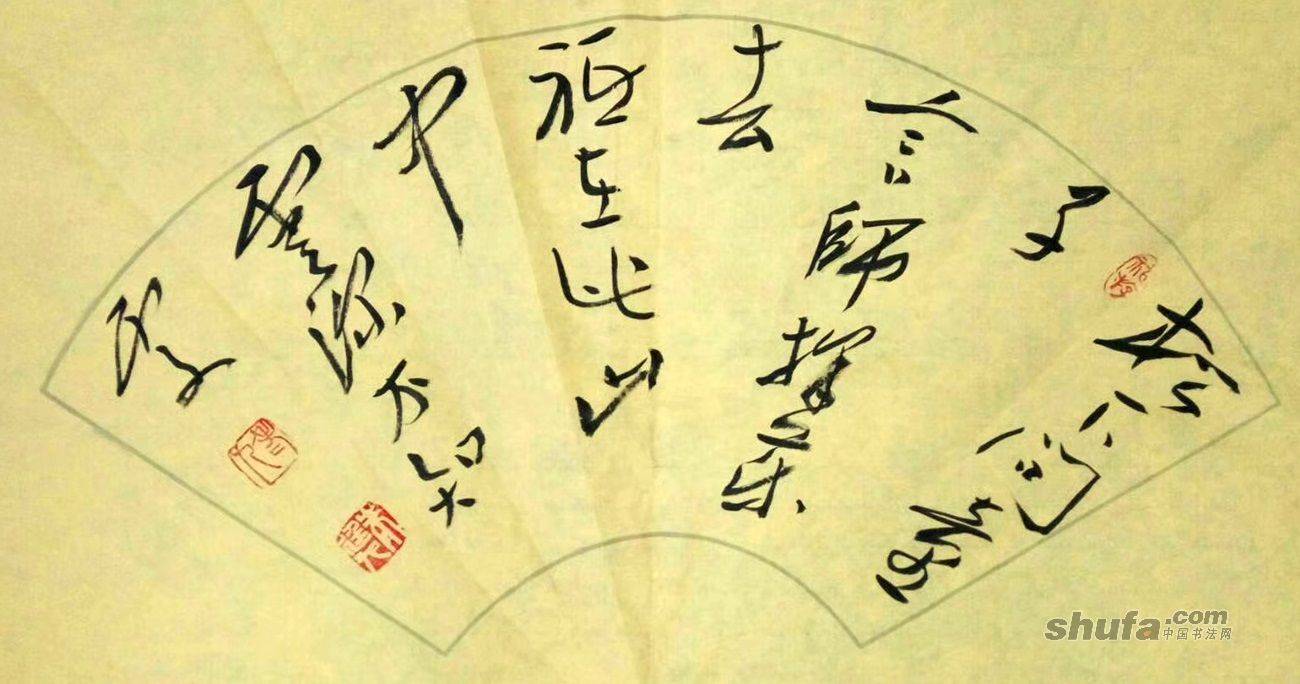 松下问童
子
言師採藥
去
祗在此山
中
雲深不知
處
shufa.com
中国书法网